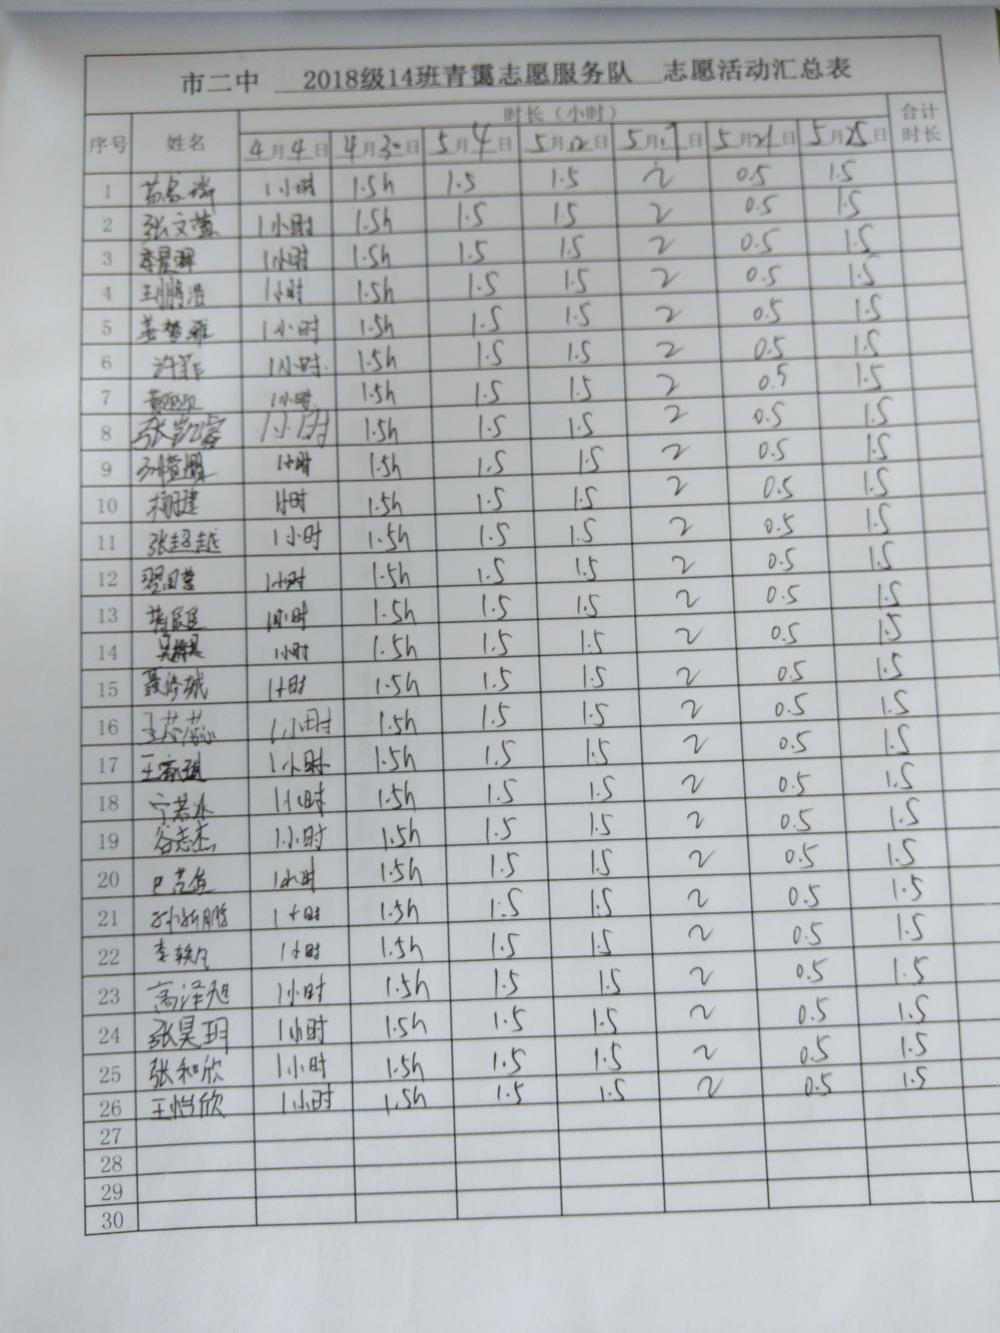 市二中 2018级14班青霭志愿服务队 志愿活动汇总表
序号 姓名 时长（小时） 合计时长
4月4日 4月30日 5月4日 5月12日 5月 日 5月21日 5月25日
1 1小时 1.5h 1.5 1.5 2 0.5 1.5
2 张文 1小时 1.5h 1.5 1.5 2 0.5 1.5
3 1小时 1.5h 1.5 1.5 2 0.5 1.5
4 1小时 1.5h 1.5 1.5 2 0.5 1.5
5 姜梦雅 1小时 1.5h 1.5 1.5 2 0.5 1.5
6 许菲 1小时 1.5h 1.5 1.5 2 0.5 1.5
7 1小时 1.5h 1.5 1.5 2 0.5 1.5
8 张凯睿 1小时 1.5h 1.5 1.5 2 0.5 1.5
9 1小时 1.5h 1.5 1.5 2 0.5 1.5
10 1小时 1.5h 1.5 1.5 2 0.5 1.5
11 张超越 1小时 1.5h 1.5 1.5 2 0.5 1.5
12 1小时 1.5h 1.5 1.5 2 0.5 1.5
13 1小时 1.5h 1.5 1.5 2 0.5 1.5
14 1小时 1.5h 1.5 1.5 2 0.5 1.5
15 聂修斌 1小时 1.5h 1.5 1.5 2 0.5 1.5
16 王芯蕊 1小时 1.5h 1.5 1.5 2 0.5 1.5
17 1小时 1.5h 1.5 1.5 2 0.5 1.5
18 宁若冰 1小时 1.5h 1.5 1.5 2 0.5 1.5
19 谷志杰 1小时 1.5h 1.5 1.5 2 0.5 1.5
20 1小时 1.5h 1.5 1.5 2 0.5 1.5
21 1小时 1.5h 1.5 1.5 2 0.5 1.5
22 李轶凡 1小时 1.5h 1.5 1.5 2 0.5 1.5
23 高泽旭 1小时 1.5h 1.5 1.5 2 0.5 1.5
24 张昊玥 1小时 1.5h 1.5 1.5 2 0.5 1.5
25 张和欣 1小时 1.5h 1.5 1.5 2 0.5 1.5
26 王怡欣 1小时 1.5h 1.5 1.5 2 0.5 1.5
27
28
29
30